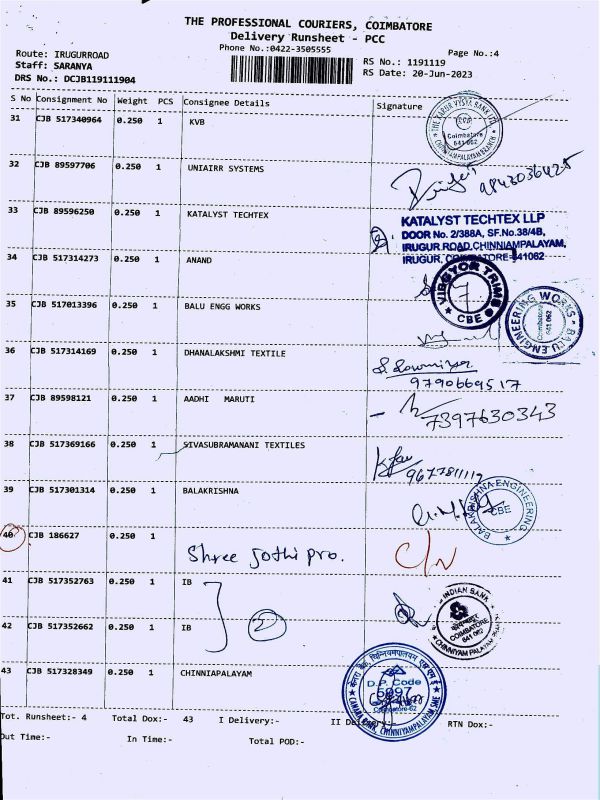 THE PROFESSIONAL COURIERS, COIMBATORE
Delivery Runsheet - PCC
Phone No.:0422-3505555
Page No.:4
Route: IRUGURROAD
Staff: SARANYA
DRS No.: DCJB119111904
RS No.: 1191119
RS Date: 20-Jun-2023
S No Consignment No Weight PCS Consignee Details Signature
31 CJB 517340964 0.250 1 KVB
THE KARUR VYSYA BANK LTD
Coimbatore
641 062
CHINNIYAMPALAYAM BRANCH
32 CJB 89597706 0.250 1 UNIAIRR SYSTEMS
9842036425
33 CJB 89596250 0.250 1 KATALYST TECHTEX
KATALYST TECHTEX LLP
DOOR No. 2/388A, SF.No.38/4B,
IRUGUR ROAD,CHINNIAMPALAYAM,
IRUGUR, COIMBATORE-641062
34 CJB 517314273 0.250 1 ANAND
VIBGYOR TRIMS
CBE
35 CJB 517013396 0.250 1 BALU ENGG WORKS
BALU ENGINEERING WORKS
Coimbatore
641 062
36 CJB 517314169 0.250 1 DHANALAKSHMI TEXTILE
S. Sowmiya
9790669517
37 CJB 89598121 0.250 1 AADHI MARUTI
7397630343
38 CJB 517369166 0.250 1 SIVASUBRAMANANI TEXTILES
39 CJB 517301314 0.250 1 BALAKRISHNA
BALAKRISHNA ENGINEERING
CBE
40 CJB 186627 0.250 1
Shree Jothi pro.
C/N
41 CJB 517352763 0.250 1 IB
2
INDIAN BANK
COIMBATORE
641 062
CHINNIYAM PALAYAM
42 CJB 517352662 0.250 1 IB
43 CJB 517328349 0.250 1 CHINNIAPALAYAM
D.P. Code
5097
Coimbatore-62
CANARA BANK, CHINNIYAMPALAYAM SME
Tot. Runsheet:- 4 Total Dox:- 43 I Delivery:- II Delivery:- RTN Dox:-
Out Time:- In Time:- Total POD:-